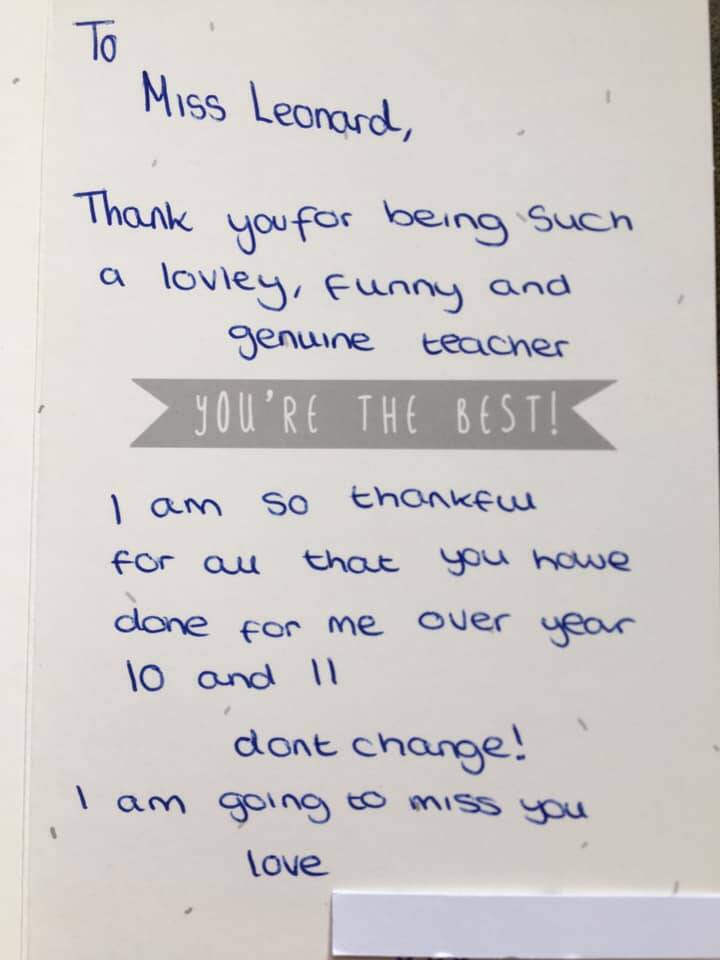 To
Miss Leonard,
Thank you for being such
a lovley, funny and
genuine teacher
YOU'RE THE BEST!
I am so thankful
for all that you have
done for me over year
10 and 11
dont change!
I am going to miss you
love